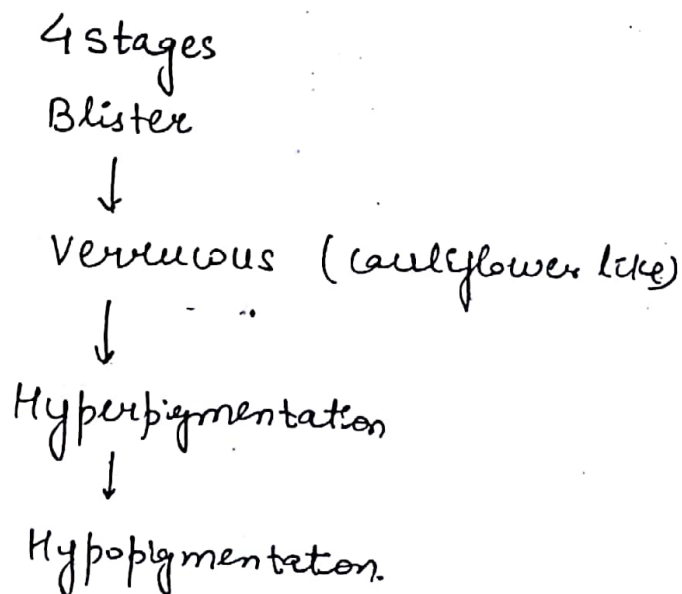 4 stages
Blister
↓
Verrucous (cauliflower like)
↓
Hyperpigmentation
↓
Hypopigmentation.